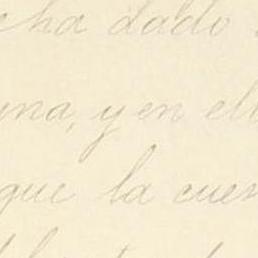 ha dado
una, y en el
que la cues